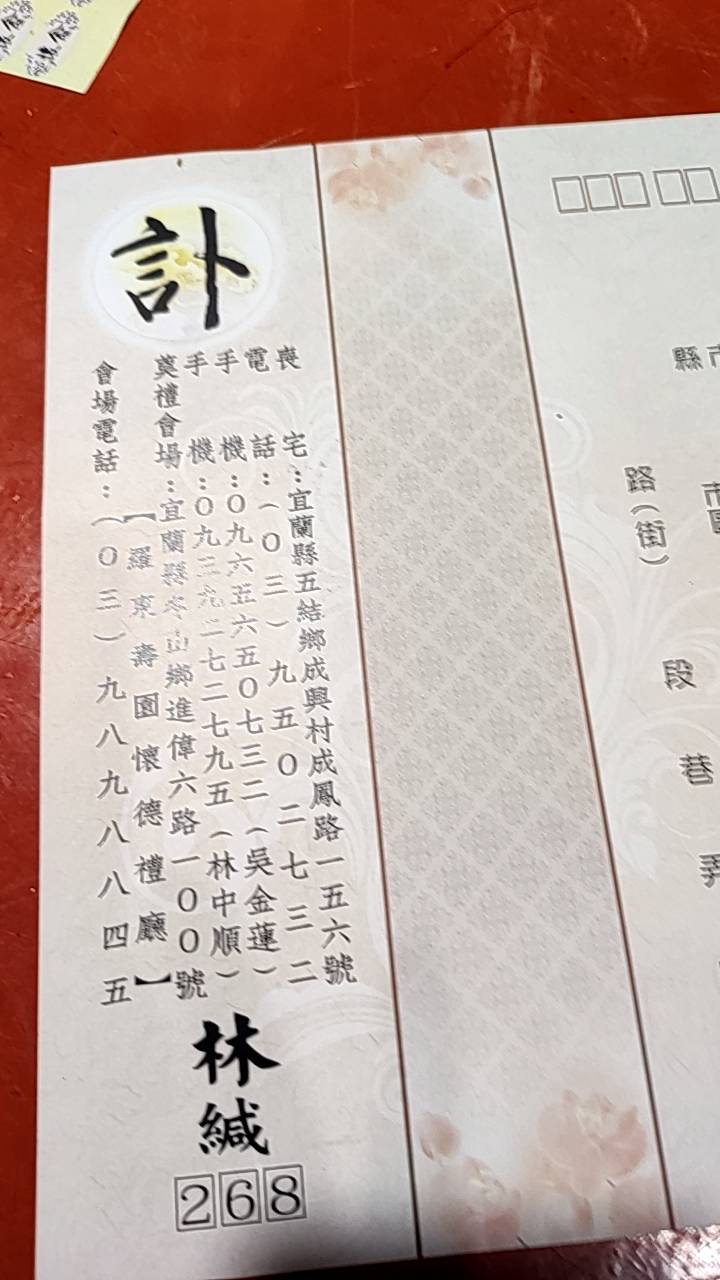 訃
喪宅：宜蘭縣五結鄉成興村成鳳路一五六號
電話：（０三）九五０二七三二
手機：０九六五六五０七三二（吳金蓮）
手機：０九三九二七二七九五（林中順）
奠禮會場：宜蘭縣冬山鄉進偉六路一００號
【羅東壽園懷德禮廳】
會場電話：（０三）九八九八八四五
林緘
268
縣市
路（街）
段
巷
弄